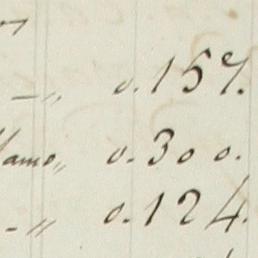 — „ 0.157.
lamo„ 0.300.
- „ 0.124.